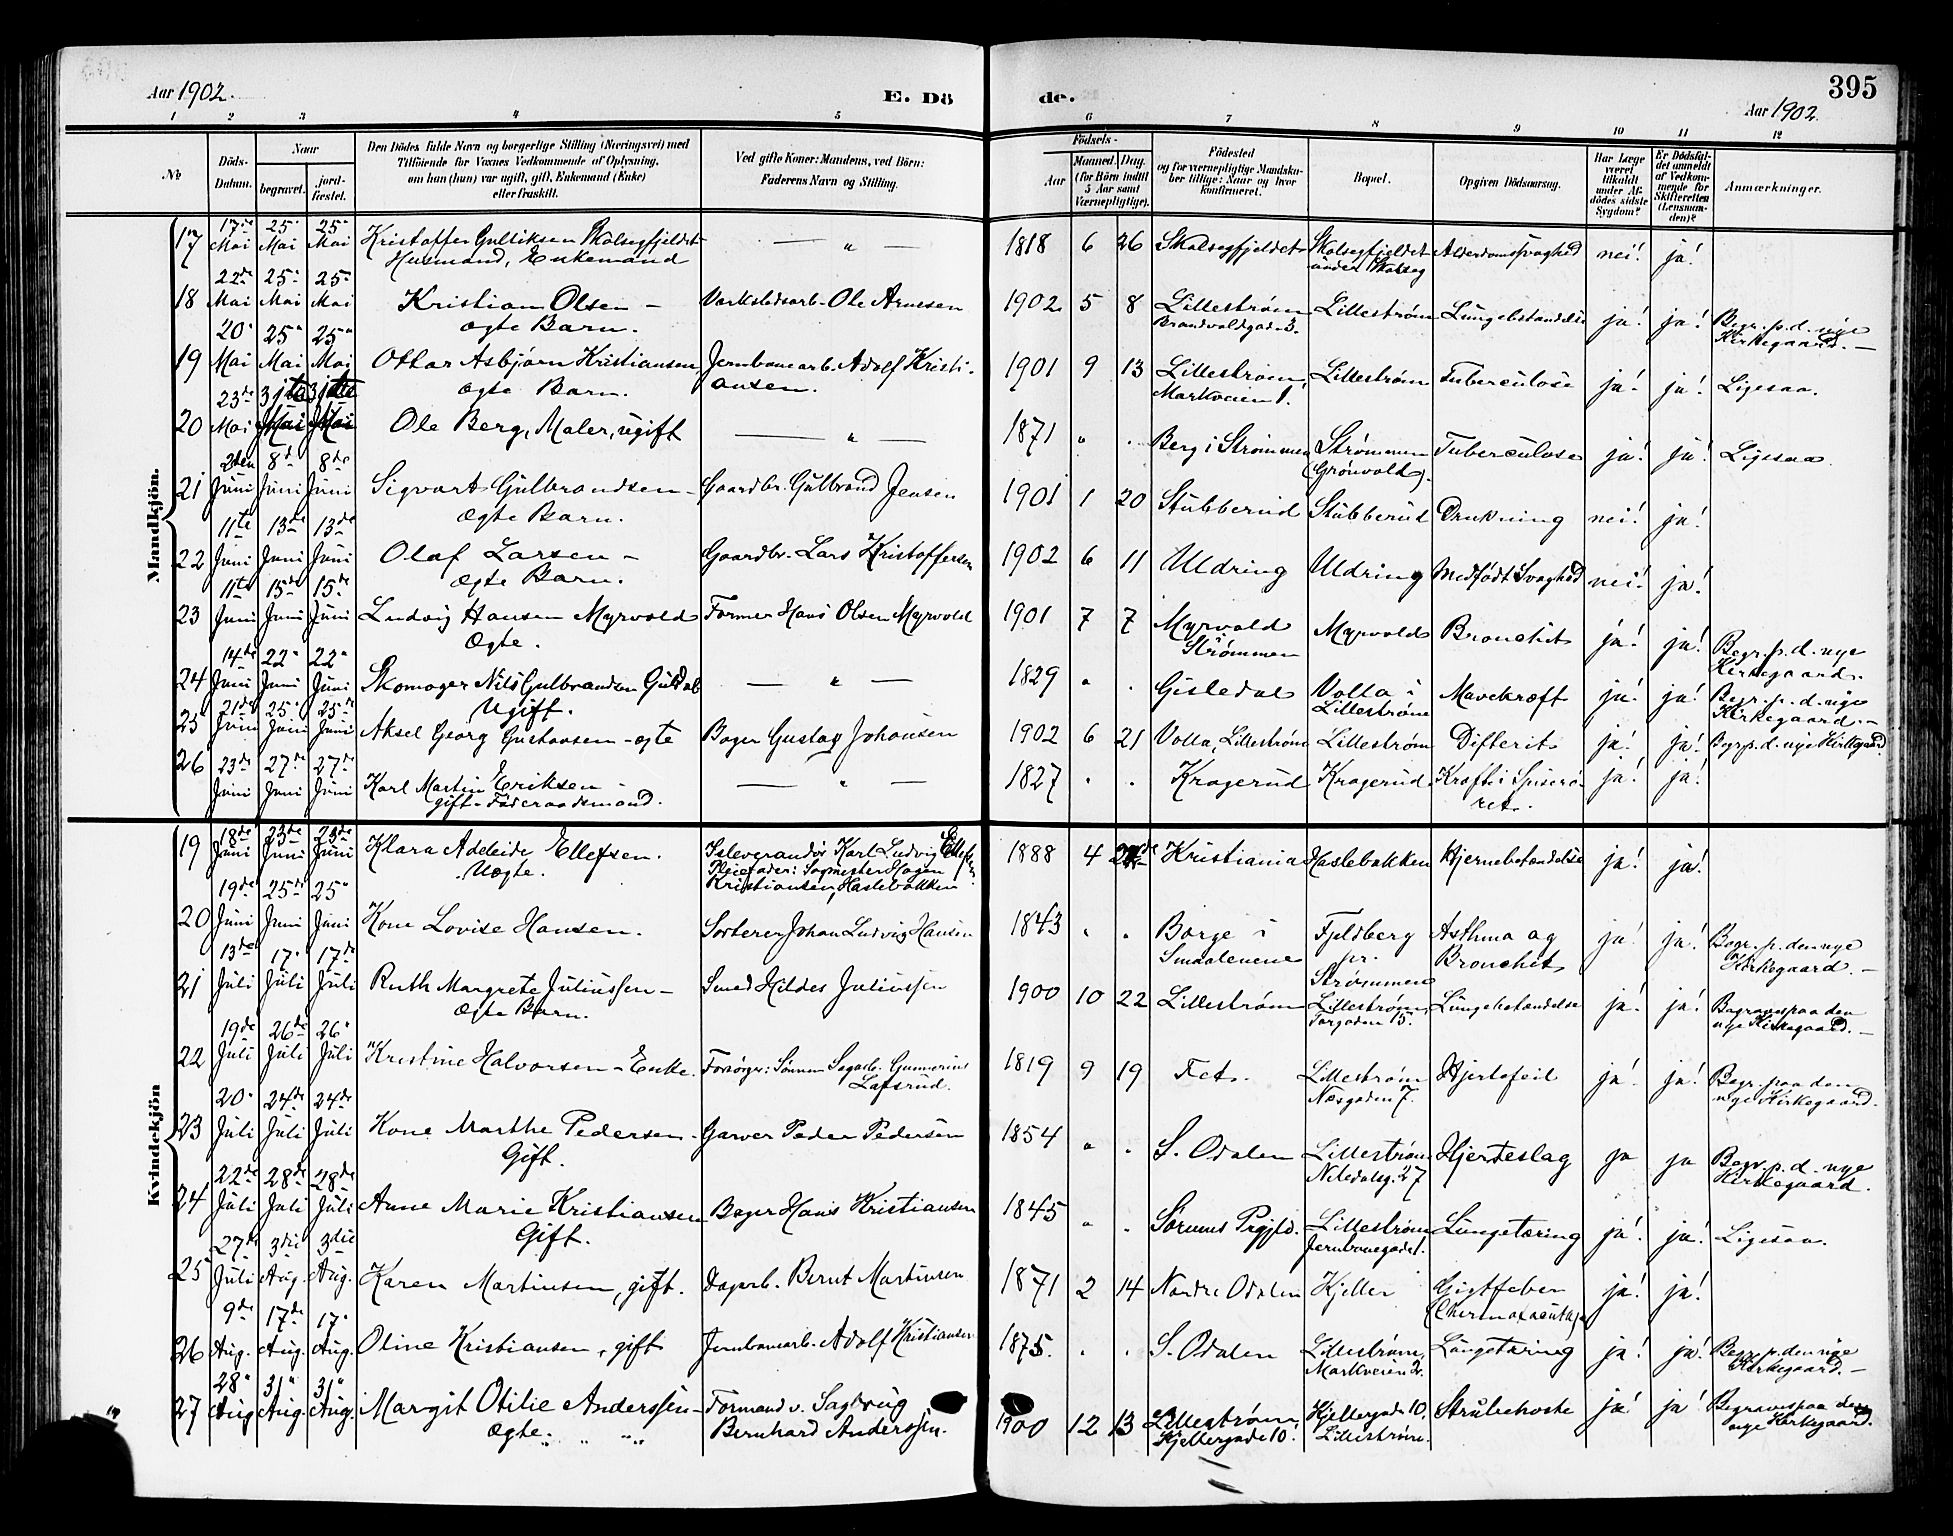 Aar 1902.
E. Dö
de.
395
Aar 1902.
1 2 3 4 5 6 7 8 9 10 11 12
No
Döds-
Datum.
Naar
begravet.
jord-
fæstet.
Den Dödes fulde Navn og borgerlige Stilling (Næringsvei) med
Tilföiende for Voxnes Vedkommende af Oplysning,
om han (hun) var ugift, gift, Enkemand (Enke)
eller fraskilt.
Ved gifte Koner: Mandens, ved Börn:
Faderens Navn og Stilling.
Födsels-
Aar
Maaned. Dag.
(for Börn indtil
5 Aar samt
Værnepligtige).
Födested
og for værnepligtige Mandska-
ber tillige: Naar og hvor
konfirmeret.
Bopæl.
Opgiven Dödsaarsag.
Har Læge
været
tilkaldt
under Af-
dödes sidste
Sygdom?
Er Dödsfal-
det anmeldt
af Vedkom-
mende for
Skifteretten
(Lensman-
den)?
Anmærkninger.
Mandkjön.
17 17de Mai 25" Mai 25" Mai Kristoffer Gulliksen Skolsegfjeldet
Husmand, Enkemand — " — 1818 6 26 Skalsegfjeldet Skolsegfjeldet
under Skolseg Alderdomssvaghed nei! ja!
18 22de Mai 25" Mai 25" Mai Kristian Olsen –
ægte Barn. Værkstedsarb. Ole Arnesen 1902 5 8 Lillestrøm
Brandvoldgaden 3. Lillestrøm Lungebetændelse ja! ja! Begr. p. d. nye
Kirkegaard. —
19 20" Mai 25" Mai 25" Mai Ottar Asbjørn Kristiansen
ægte Barn. Jernbanearb. Adolf Kristi-
ansen. 1901 9 13 Lillestrøm,
Markveien 1. Lillestrøm Tuberculose ja! ja! Ligesaa.
20 23de Mai Ole Berg, Maler, ugift — " — 1871 " " Berg i Strømmen Strømmen
(Grønvold). Tuberculose ja! ja! Ligesaa.
21 2den Juni 8de Juni 8de Juni Sigvart Gulbrandsen –
Ægte Barn. Gaardbr. Gulbrand Jensen 1901 1 20 Stubberud Stubberud Drukning nei! ja!
22 11te Juni 13de Juni 13de Juni Olaf Larsen –
ægte Barn. Gaardbr. Lars Kristoffersen 1902 6 11 Uldring Uldring Medfødt Svaghed nei! ja!
23 11te Juni 15de Juni 15de Juni Ludvig Hansen Myrvold
Ægte. Former Hans Olsen Myrvold 1901 7 7 Myrvold
Strømmen Myrvold Bronchit ja! ja! Begr. p. d. nye
Kirkegaard.
24 14de Juni 22" Juni 22" Juni Skomager Nils Gulbrandsen Guldal
Ugift. — " — 1829 " " Gisledal Volla i
Lillestrøm Mavekræft ja! ja! Begr. p. d. nye
Kirkegaard. —
25 21de Juni 25" Juni 25de Juni Aksel Georg Gustavsen – ægte Bager Gustav Johansen 1902 6 21 Volla, Lillestrøm Lillestrøm Difterit ja! ja! Begr. p. d. nye Kirkegaard
26 23de Juni 27de Juni 27de Juni Karl Martin Eriksen –
gift. Føderaadsmand. — " — 1827 " " Kragerud Kragerud Kræft i Spiserø-
ret. ja! ja!
Kvindekjön
19 18de Juni 23de Juni 23de Juni Klara Adeleide Ellefsen.
Uægte. Isleverandør Karl Ludvig Ellefsen
Pleiefader: Sagmester Hagen
Kristiansen, Haslebakken 1888 4 Kristiania Haslebakken Hjernebetændelse ja! ja!
20 19de Juni 25de Juni 25" Juni Kone Lovise Hansen. Sorterer Johan Ludvig Hansen 1843 " " Borge i
Smaalenene Fjeldberg
pr.
Strømmen Asthma og
Bronchit ja! ja! Begr. p. den nye
Kirkegaard. —
21 13de Juli 17" Juli 17de Juli Ruth Margrete Juliussen –
Ægte Barn. Smed Hildes Juliussen 1900 10 22 Lillestrøm Lillestrøm,
Torgaden 15. Lungebetændelse ja! ja! Begraves paa den
nye Kirkegaard. —
22 19de Juli 26de Juli 26" Juli Kristine Halvorsen – Enke. Forsørger: Sønnen Sagarb. Gunnerius
Lafsrud. 1819 9 19 Fet. Lillestrøm
Næsgaden 7. Hjertefeil ja! ja! Begr. paa den
nye Kirkegaard.
23 20" Juli 24de Juli 24de Juli Kone Marthe Pedersen.
Gift. Garver Peder Pedersen 1854 " " S. Odalen Lillestrøm
Nitedalsg. 27 Hjerteslag ja ja Begr. p. d. nye
Kirkegaard.
24 22de Juli 28de Juli 28de Juli Anne Marie Kristiansen
Gift. Bager Hans Kristiansen 1845 " " Sørums Prgjld. Lillestrøm
Jernbanegade 1. Lungetæring ja! ja! Ligesaa.
25 27de Juli 3die Aug. 3die Aug. Karen Martinsen, gift. Dagarb. Bernt Martinsen 1871 2 14 Nordre Odalen Kjeller Gigtfeber ja! ja!
26 9de Aug. 17de Aug. 17" Aug. Oline Kristiansen, gift Jernbanearb. Adolf Kristiansen 1875. " " S. Odalen Lillestrøm,
Markveien 2. Lungetæring ja! ja! Begr. p. den nye
Kirkegaard. —
27 28" Aug 31" Aug. 31" Aug. Margit Otilie Anderssen –
Ægte. Formand v. Sagbrug
Bernhard Anderssen. 1900 12 13 Lillestrøm,
Kjellergade 10. Kjellergade 10.
Lillestrøm. Strubehoste ja! ja! Begraves paa den
nye Kirkegaard.